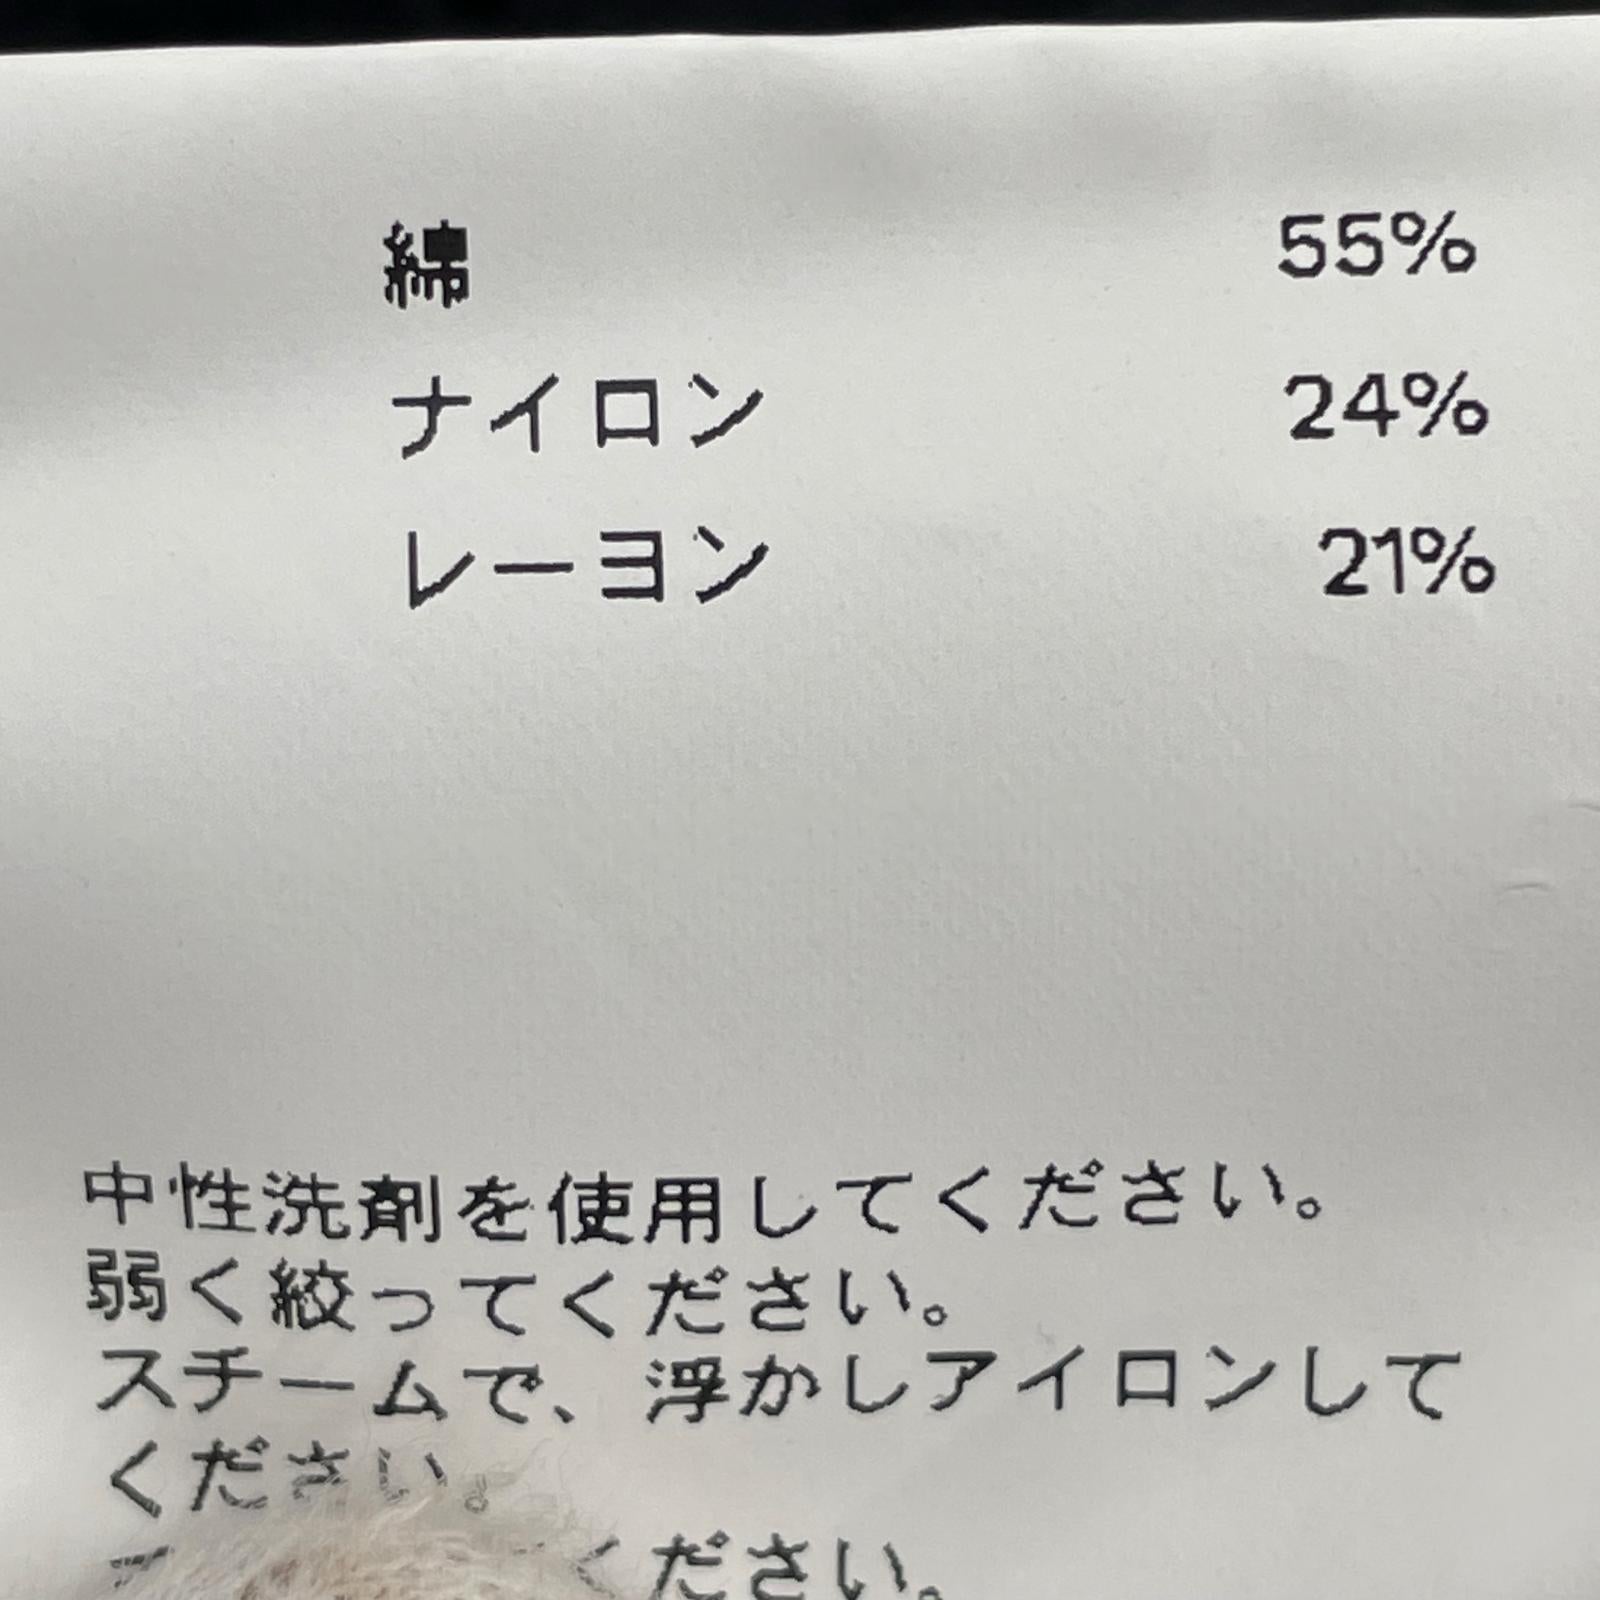 綿 55%
ナイロン 24%
レーヨン 21%
中性洗剤を使用してください。
弱く絞ってください。
スチームで、浮かしアイロンして
ください。
ください。